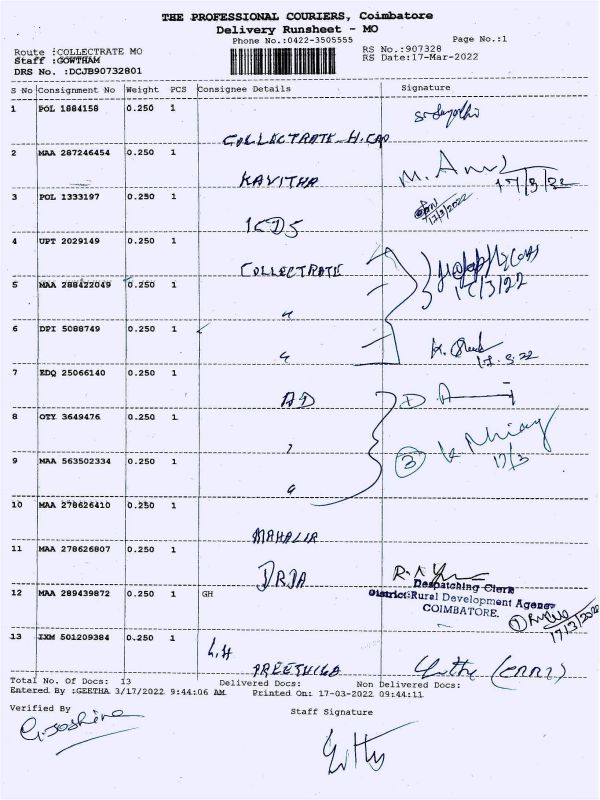 THE PROFESSIONAL COURIERS, Coimbatore
Delivery Runsheet - MO
Phone No.:0422-3505555
Page No.:1
Route :COLLECTRATE MO
RS No.:907328
Staff :GOWTHAM
RS Date:17-Mar-2022
DRS No. :DCJB90732801
S No Consignment No Weight PCS Consignee Details Signature
1 POL 1884158 0.250 1
COLLECTRATE
2 MAA 287246454 0.250 1
KAVITHA
17/3/22
3 POL 1333197 0.250 1
17/3/2022
ICDS
4 UPT 2029149 0.250 1
COLLECTRATE
5 MAA 288422049 0.250 1
17/3/22
"
6 DPI 5088749 0.250 1
"
17.3.22
7 EDQ 25066140 0.250 1
AD
8 OTY 3649476 0.250 1
"
3
17/3
9 MAA 563502334 0.250 1
"
10 MAA 278626410 0.250 1
MAHALIR
11 MAA 278626807 0.250 1
DRDA
Despatching Clerk
12 MAA 289439872 0.250 1 GH
District Rural Development Agency
COIMBATORE.
17/3/2022
13 IXM 501209384 0.250 1
Total No. Of Docs: 13 Delivered Docs: Non Delivered Docs:
Entered By :GEETHA 3/17/2022 9:44:06 AM Printed On: 17-03-2022 09:44:11
Verified By
Staff Signature